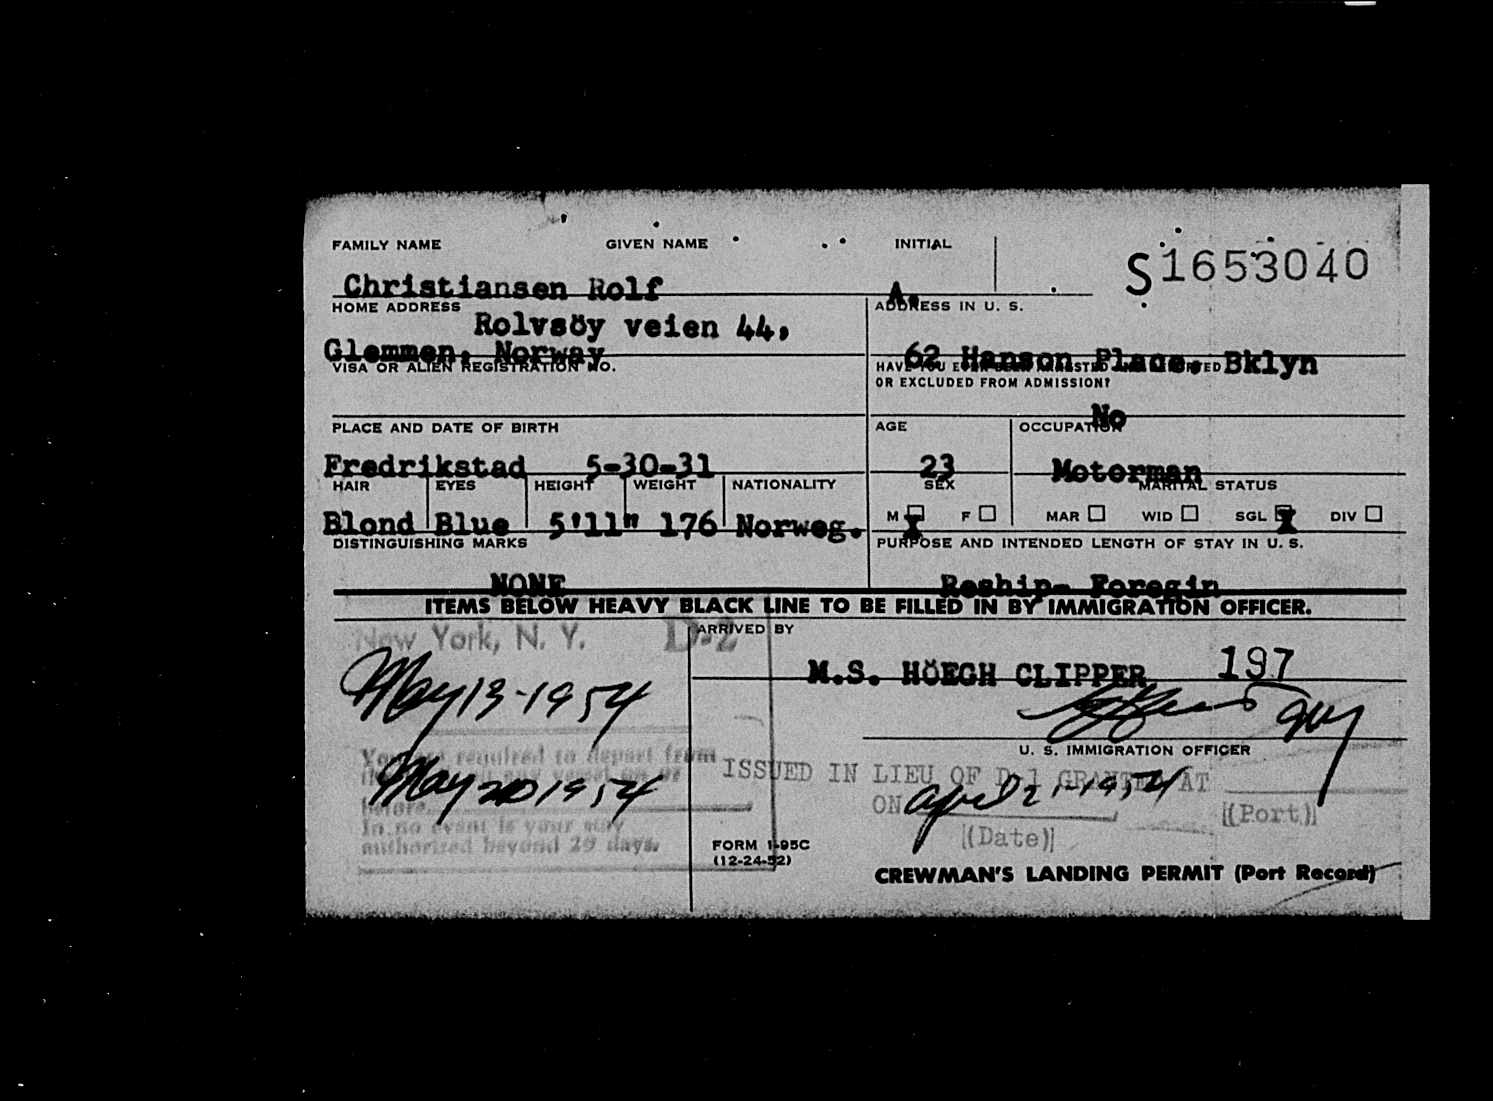 FAMILY NAME GIVEN NAME INITIAL
S1653040
Christiansen Rolf A.
HOME ADDRESS ADDRESS IN U. S.
Rolvsöy veien 44,
Glemmen, Norway 62 Hanson Place, Bklyn
VISA OR ALIEN REGISTRATION NO. HAVE YOU EVER BEEN ARRESTED
OR EXCLUDED FROM ADMISSION?
No
PLACE AND DATE OF BIRTH AGE OCCUPATION
Fredrikstad 5-30-31 23 Motorman
HAIR EYES HEIGHT WEIGHT NATIONALITY SEX MARITAL STATUS
Blond Blue 5'11" 176 Norweg. M X F MAR WID SGL X DIV
DISTINGUISHING MARKS PURPOSE AND INTENDED LENGTH OF STAY IN U. S.
NONE Reship- Foregin
ITEMS BELOW HEAVY BLACK LINE TO BE FILLED IN BY IMMIGRATION OFFICER.
New York, N. Y. D-2 ARRIVED BY
M.S. HÖEGH CLIPPER 197
May 13-1954
U. S. IMMIGRATION OFFICER
You are required to depart from
ISSUED IN LIEU OF D-1 GRANTED AT
May 20 1954
before
ON April 21-1954 (Port)
In no event is your stay
authorized beyond 29 days.
(Date)
FORM I-95C
(12-24-52)
CREWMAN'S LANDING PERMIT (Port Record)